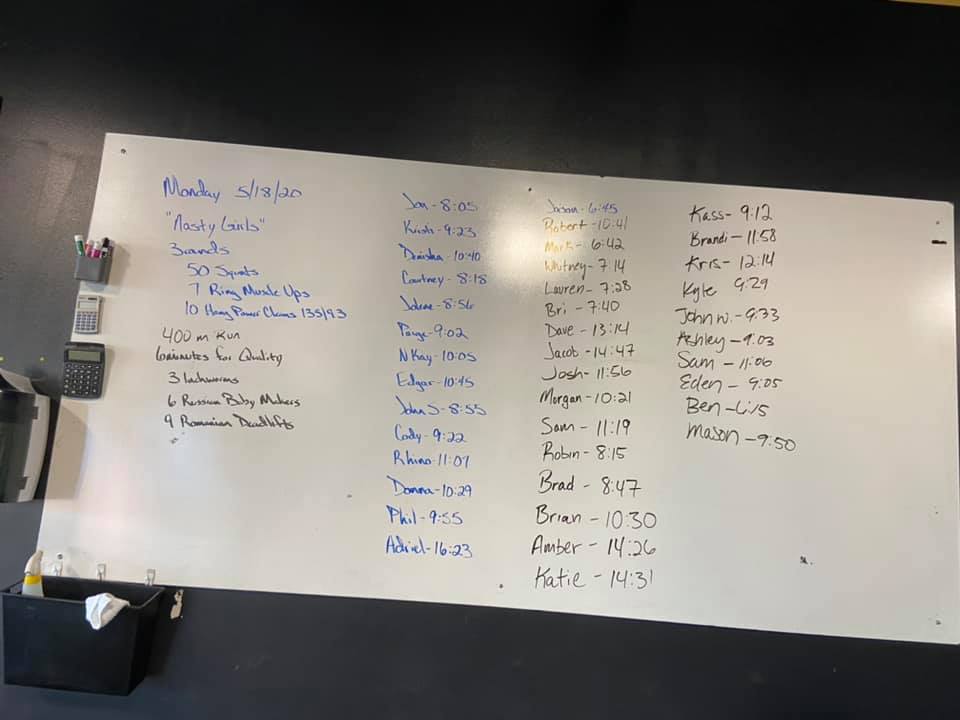 Monday 5/18/20
"Nasty Girls"
3 rounds
50 Squats
7 Ring Muscle Ups
10 Hang Power Cleans 135/93
400 m Run
6 minutes for Quality
3 Inchworms
6 Russian Baby Makers
9 Romanian Deadlifts
Jon - 8:05
Kristi - 9:23
- 10:40
Courtney - 8:18
Jolene - 8:56
Paige - 9:02
N Kay - 10:05
Edgar - 10:45
John S - 8:55
Cody - 9:22
Rhino - 11:07
Donna - 10:29
Phil - 9:55
Adriel - 16:23
Jason - 6:45
Robert - 10:41
Mark - 6:42
Whitney - 7:14
Lauren - 7:28
Bri - 7:40
Dave - 13:14
Jacob - 14:47
Josh - 11:56
Morgan - 10:21
Sam - 11:19
Robin - 8:15
Brad - 8:47
Brian - 10:30
Amber - 14:26
Katie - 14:31
Kass - 9:12
Brandi - 11:58
Kris - 12:14
Kyle 9:29
John W. - 9:33
Ashley - 9:03
Sam - 11:06
Eden - 9:05
Ben -
Mason - 9:50